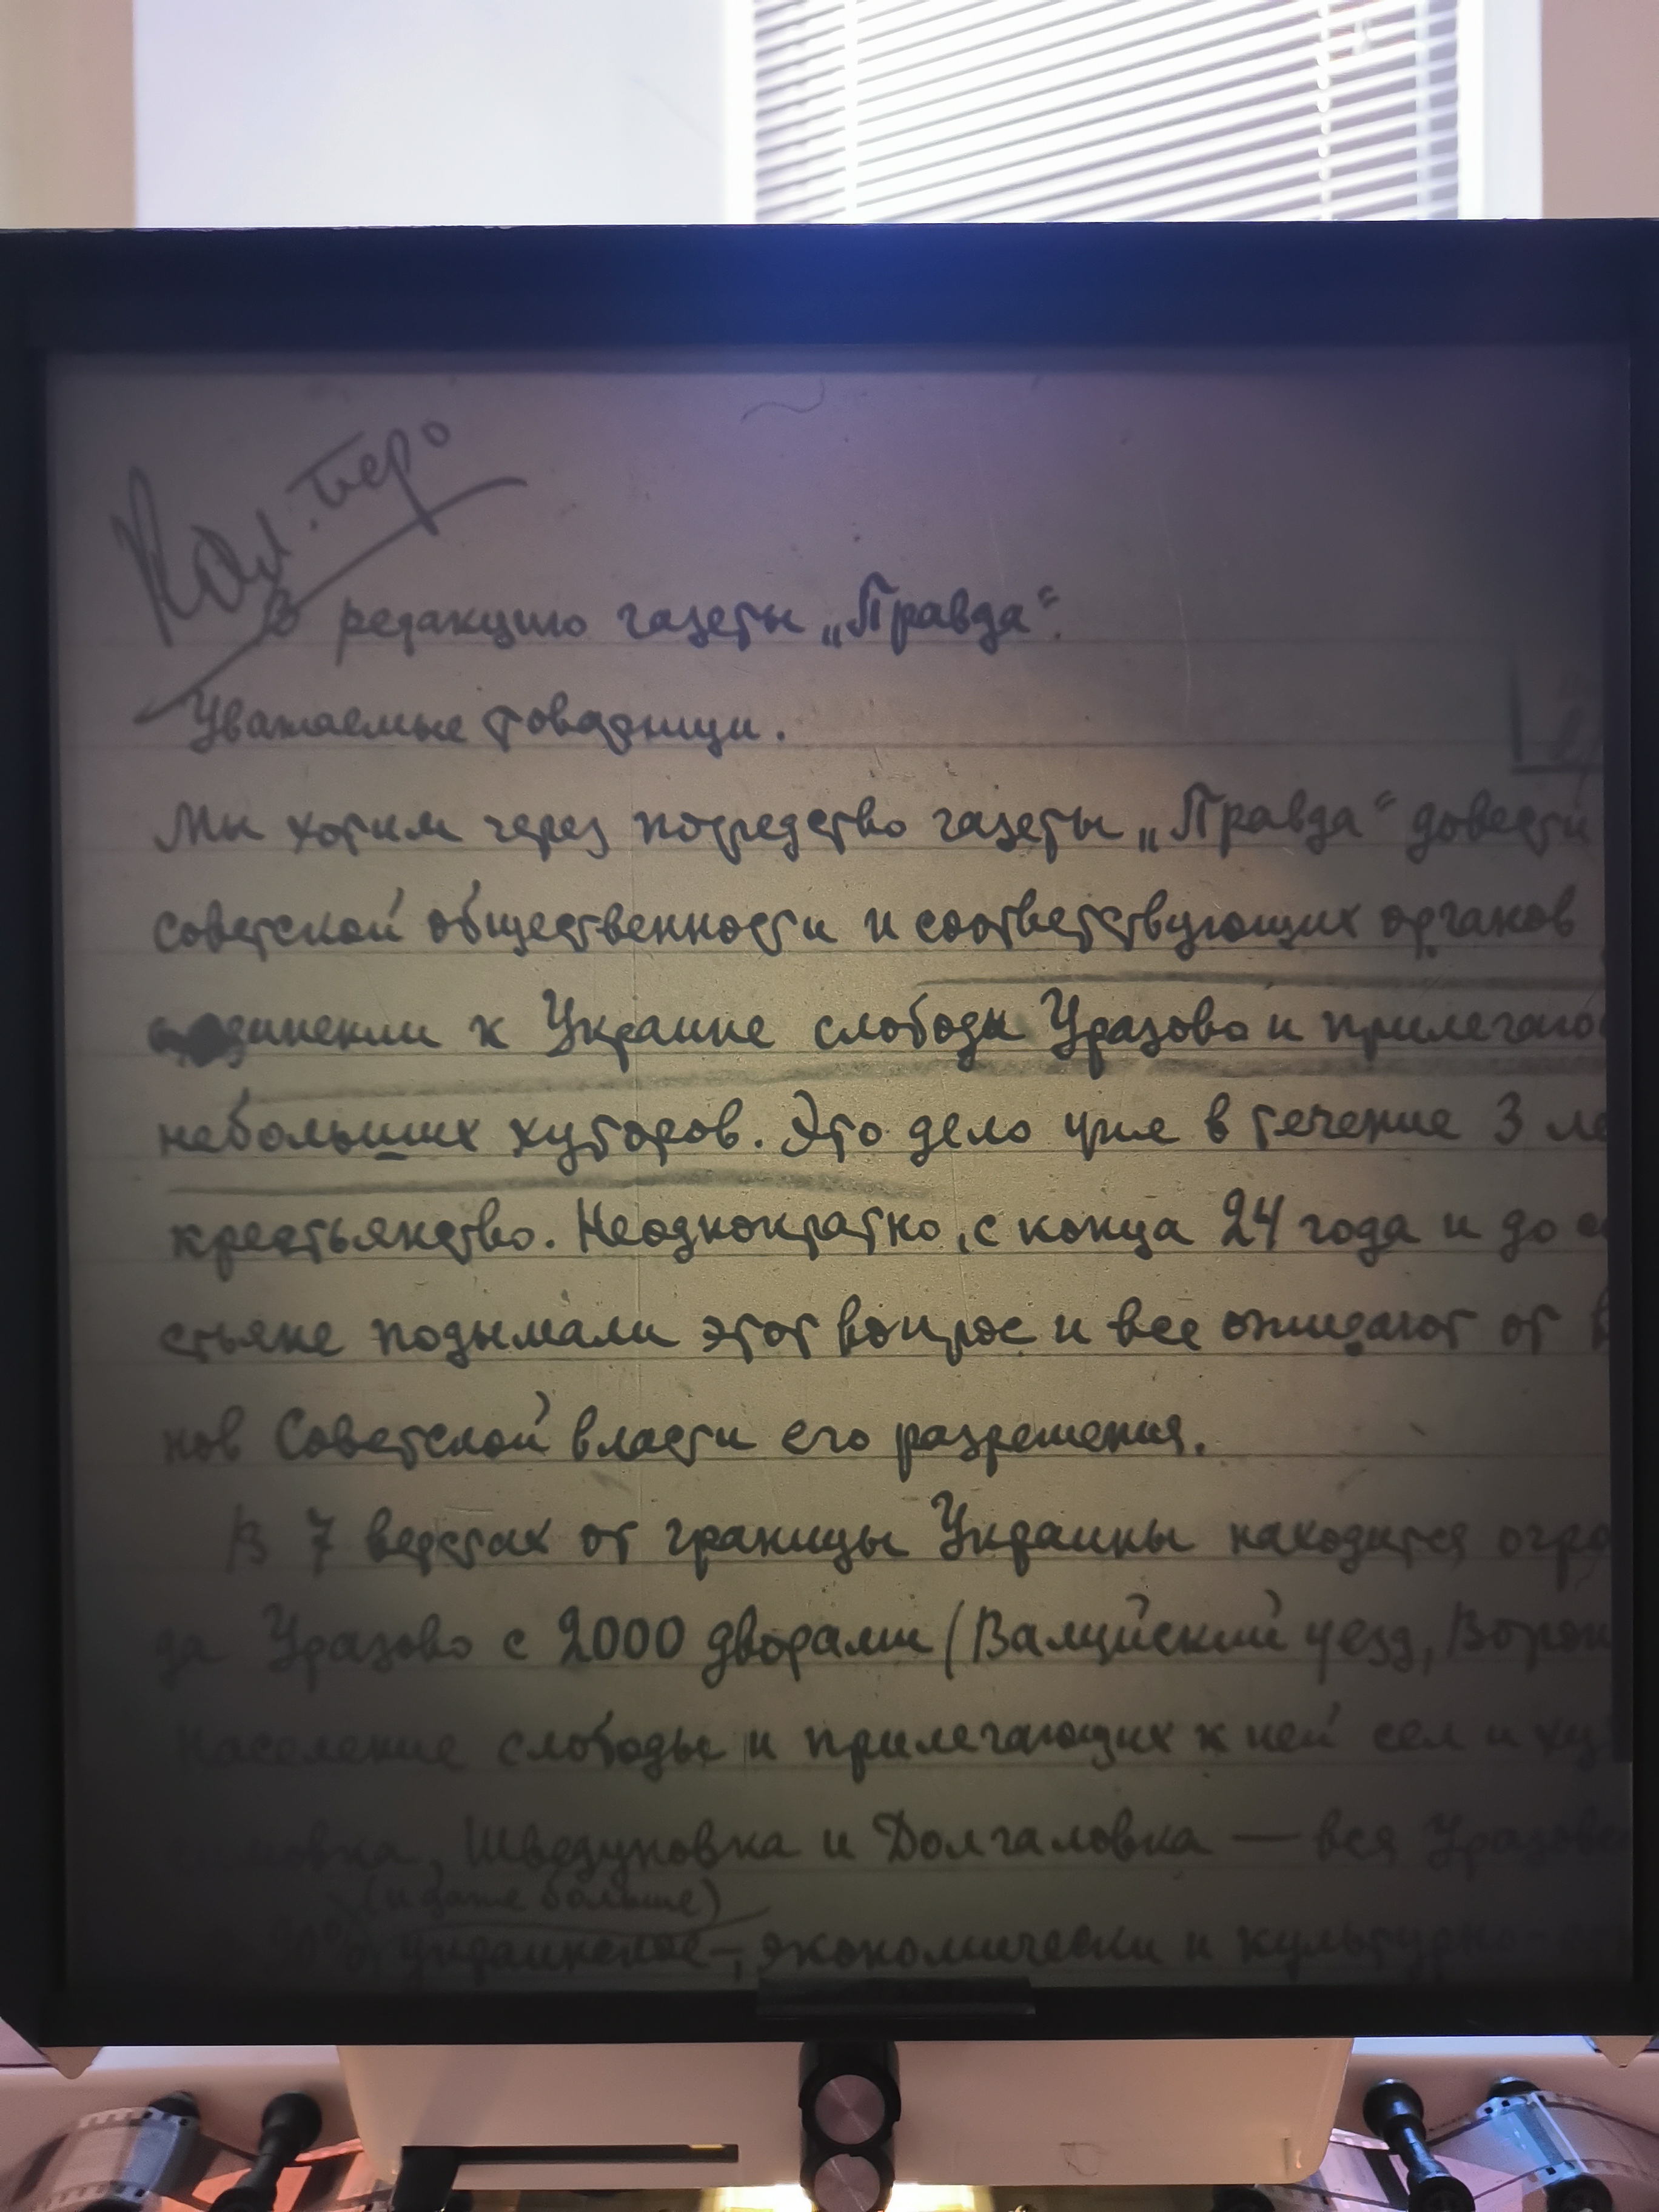 Кол. пер.
В редакцию газеты „Правда“.
Уважаемые товарищи.
Мы хотим через посредство газеты „Правда“ довести
советской общественности и соответствующих органов
к Украине слободы Уразово и прилегаю
небольших хуторов. Это дело уже в течение 3 ле
крестьянство. Неоднократно, с конца 24 года и до
стьяне подымали этот вопрос и все ожидают от в
нов Советской власти его разрешения.
В 7 верстах от границы Украины находится огро
да Уразово с 2000 дворами (Валуйский уезд, Ворон
Население слободы и прилегающих к ней сел и ху
Шведуновка и Долгаловка — вся Уразовс
(и даже больше)
90% украинское—, экономически и культурно